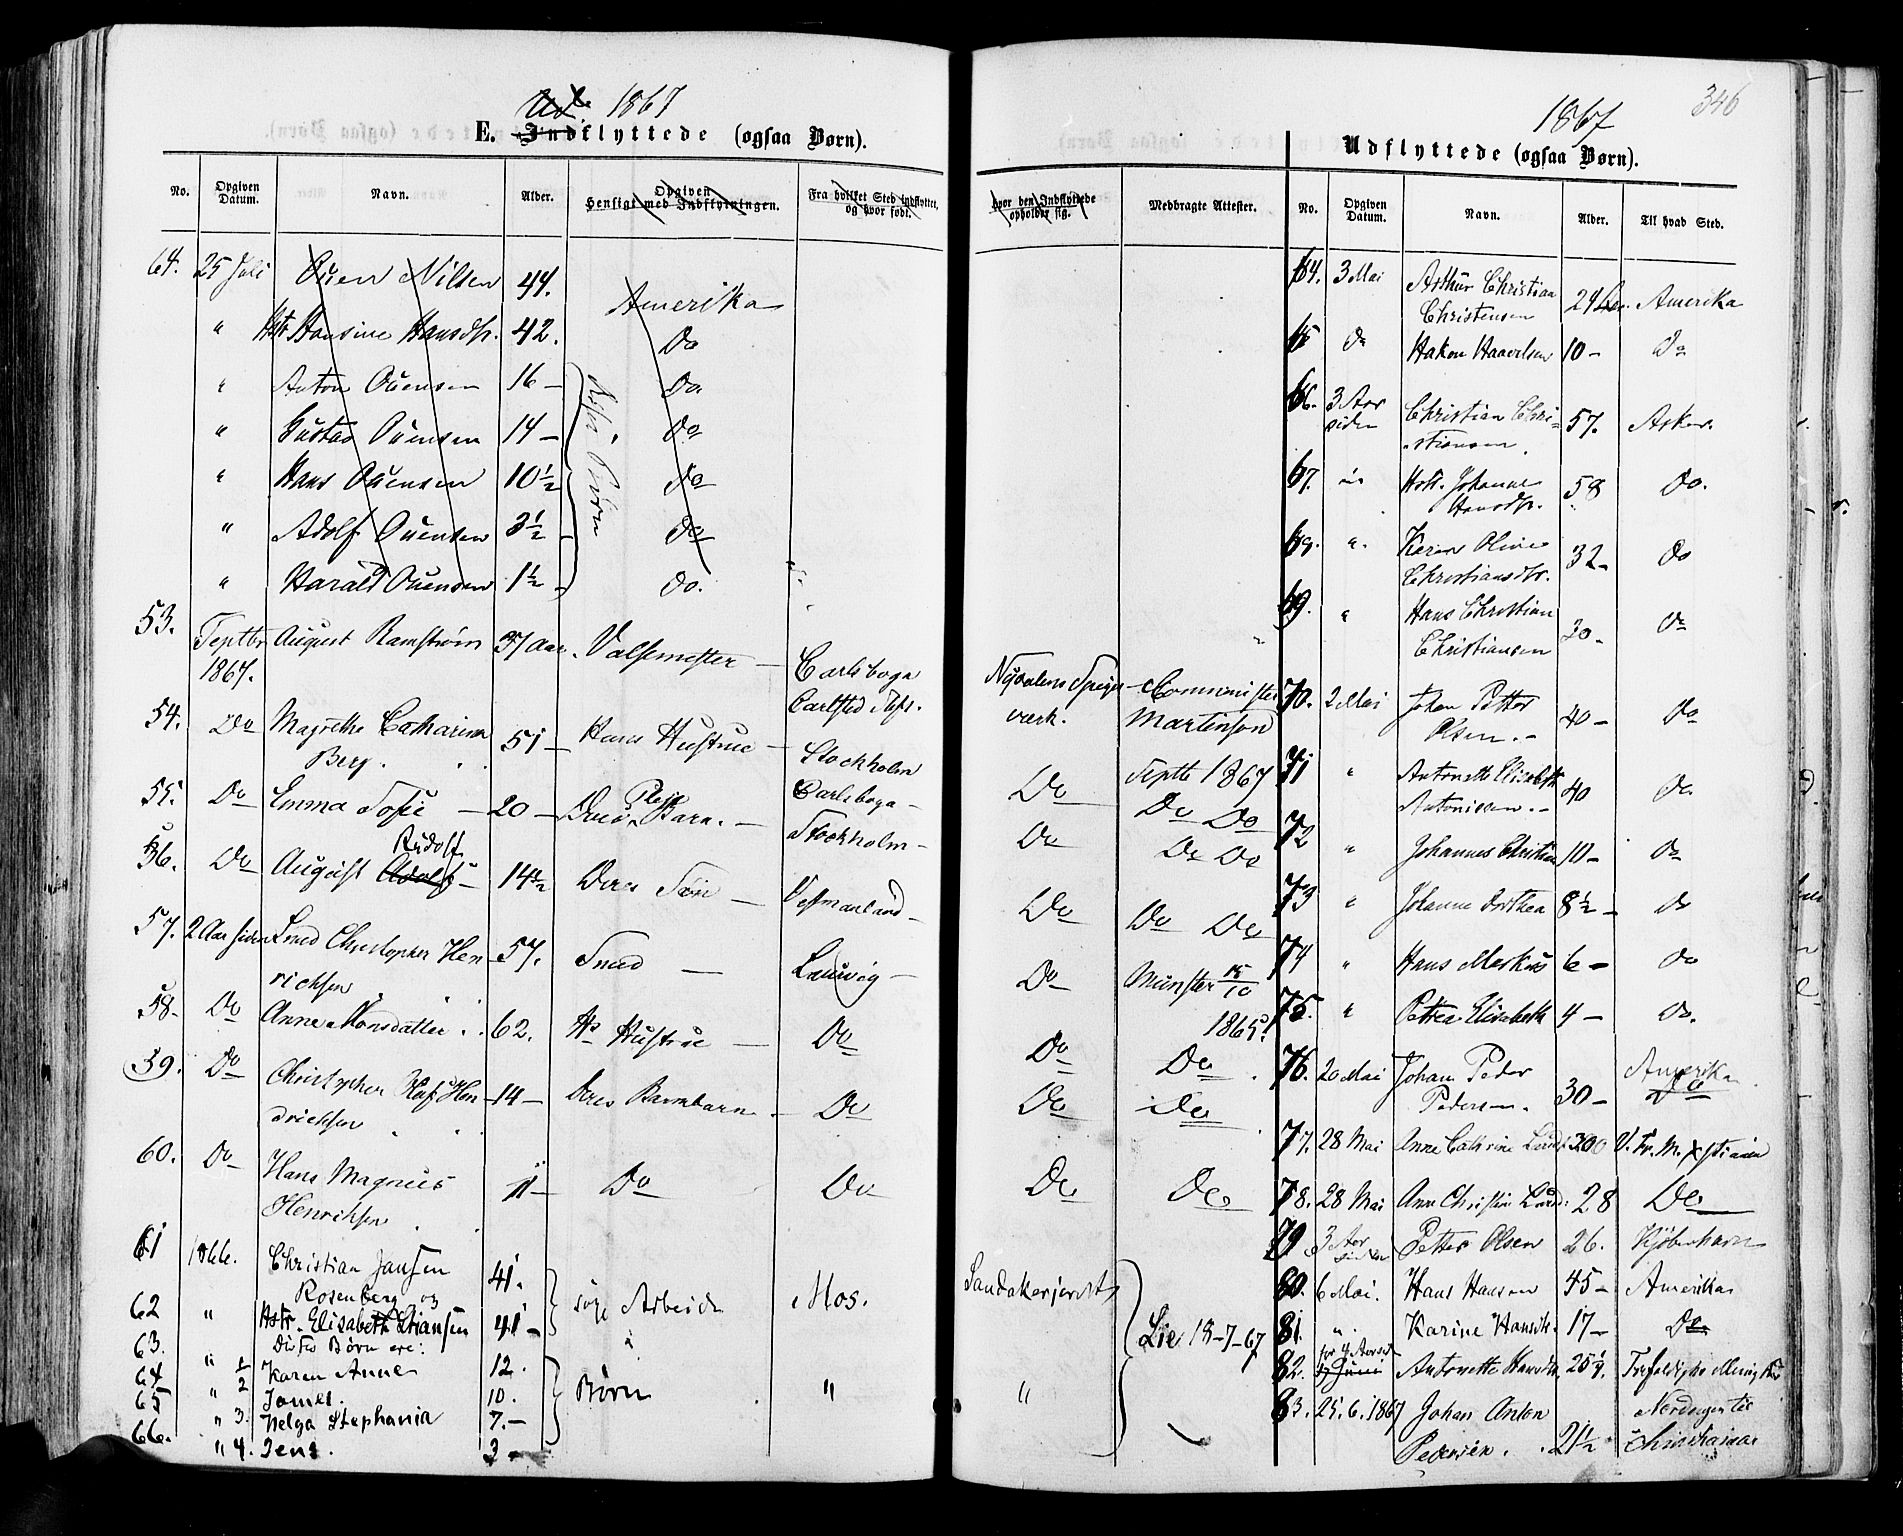 Ud. 1867
E. Indflyttede (ogsaa Børn).
No.
Opgiven Datum.
Navn.
Alder.
Opgiven Hensigt med Indflytningen.
Fra hvilket Sted indflyttet, og hvor født.
64. 25 Juli Ouen Nilsen 44. Amerika
" Hstr Hansine Hansdtr. 42. Do
" Anton Ouensen 16 – Do.
" Gustav Ouensen 14 – Do
" Hans Ouensen 10½ Do
" Adolf Ouensen 3½ – Do
" Harald Ouensen 1½ – Do.
Børn
53. Septbr August Ramstrøm 37 Aar. Valsemester – Carlsboga
1867. Carlsted
54. Do Magrethe Catharina 51 – Hans Hustrue –
Berg. Stockholm
55. Do Emma Sofie – 20 – Deres Pleje Barn. – Carlsboga –
Stockholm –
56. Do August Adolf Rudolf – 14½ Deres Søn – Vestmanland –
57. 2 Aar siden Smed Christopher Hen 57. Smed – Laurvig –
richsen
58. Do Anne Monsdatter 62. Hs Hustrue – Do
59. Do Christopher Hen – 14 – Deres Barnebarn – Do
drichsen
60. Do Hans Magnus 11 – Do Do
Henriksen
61 1866. Christian Jansen 41.
Rosenberg og
62 " Hstr. Elisabeth Stiansen 41 – søge Arbeide Mos.
63. Disses Børn ere:
64 " 1 Karen Anne 12.
65 " 2 James. 10. Børn "
" 3. Helga Stephania 7. –
66. " 4. Jens. 3 –
hvor den Indflyttede opholder sig.
Medbragte Attester.
Nydalens Spiger – Comminister
værk. Martinson
Do Septb 1867
Do Do
Do Do Do
Do Do Do
Do Munster 15/10
1865.
Do Do
Do Do
Do Do
Sandakerjordet
Lie 18-7-67
"
346
1867
Udflyttede (ogsaa Børn).
No.
Opgiven Datum.
Navn.
Alder.
Til hvad Sted.
64. 3 Mai Arthur Christian
Christensen 24 Amerika
65 Do Hakon Haavelsen 10 – Do
66. 3 Aar Christian Chri-
siden stiansen. 57. Asker.
67. " Hstr. Johanne 58 Do.
Hansdtr.
69. " Karen Oline 32 – Do
Christiansdtr.
69. " Hans Christian
Christiansen 30 – Do
70. 2 Mai Johan Petter 40 – Do
Olsen. –
71 " Antonette Elisabeth 40 Do.
Antonissen. –
72 " Johannes Christian 10 – Do
73 " Johanne Dorthea 8½ – Do
74 " Hans Markus 6 – Do
75. " Petrea Elisabeth 4 – Do.
76. 20 Mai Johan Peder Amerika
Pedersen. 30 – Do
77. 28 Mai Anne Cathrine Lund 30 V. Fr. M. Xstiania
78. 28 Mai Ann Christin Lund 28 Do
79 3 Aar siden Petter Olsen 26. Kjøbenhavn
80. 6 Mai. Hans Hansen 45 – Amerika
81. " Karine Hansdtr. 17 – Do
82. for 4 Aar sid Juni Antonette Hansdtr 25¼ Trefoldigh. Menighed
83. 25. 6. 1867 Johan Anton
Pedersen. 21½ Christiania